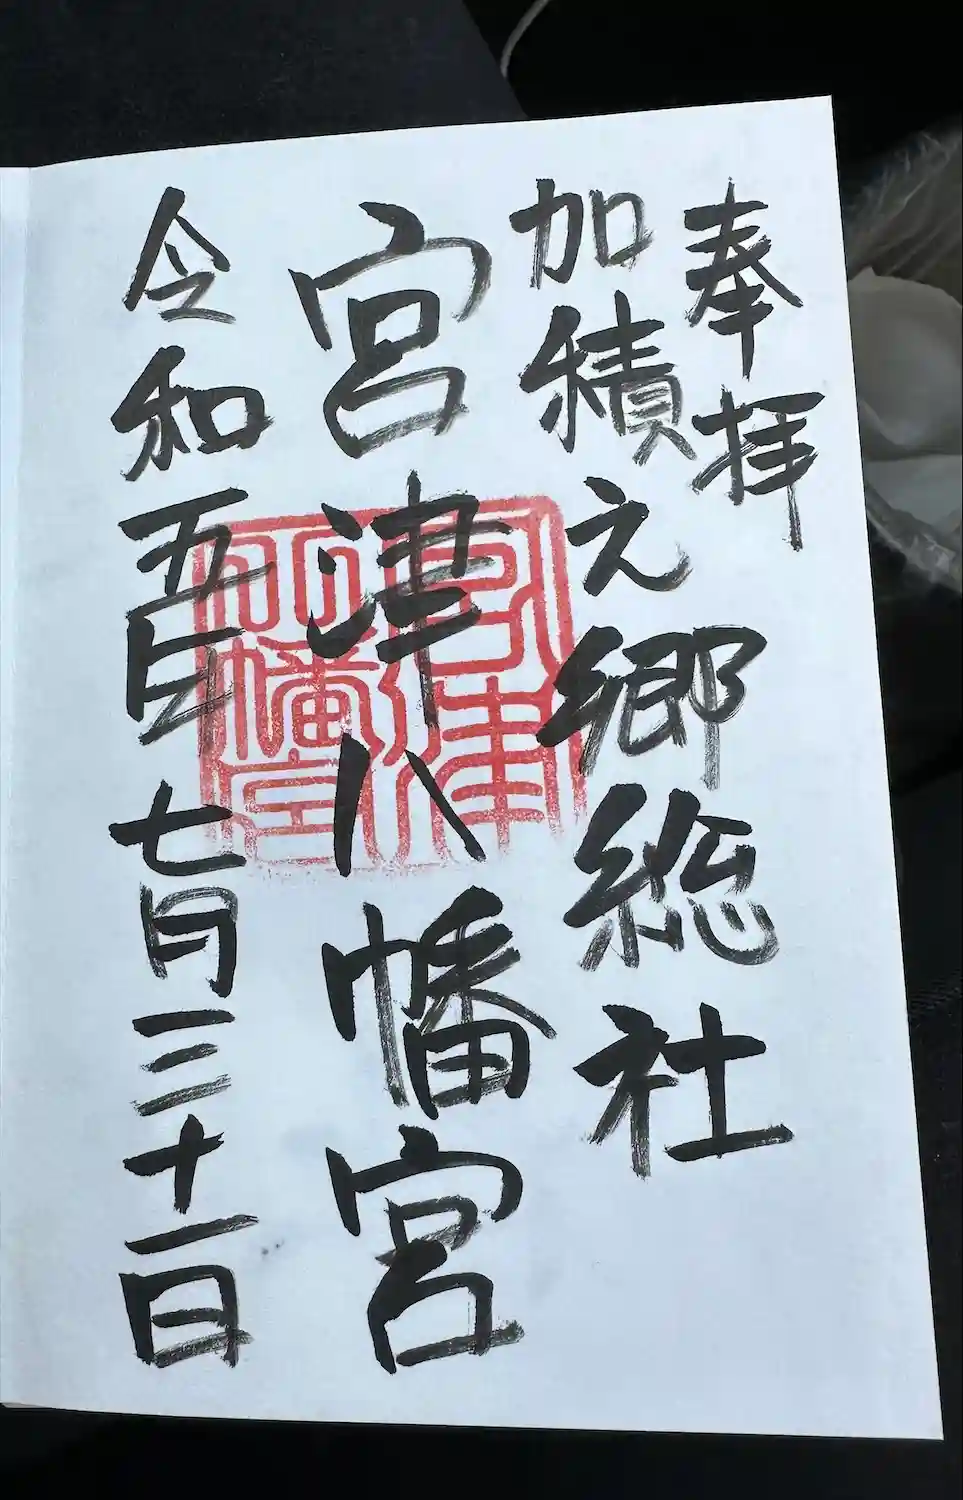 奉拝
加積之郷総社
宮津八幡宮
令和五年七月三十一日
宮津
八幡宮